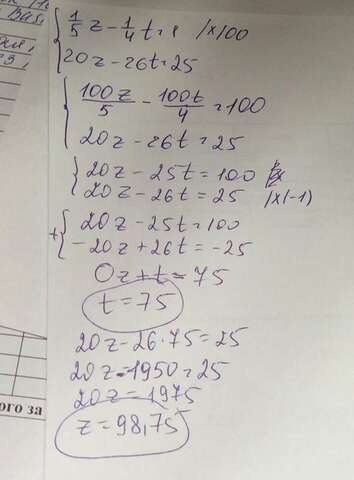 1/5 z - 1/4 t = 1 /×100
20z - 26t = 25
100z/5 - 100t/4 = 100
20z - 26t = 25
20z - 25t = 100
20z - 26t = 25 /×(-1)
+ 20z - 25t = 100
-20z + 26t = -25
0z + t = 75
t = 75
20z - 26·75 = 25
20z - 1950 = 25
20z = 1975
z = 98,75
ого за